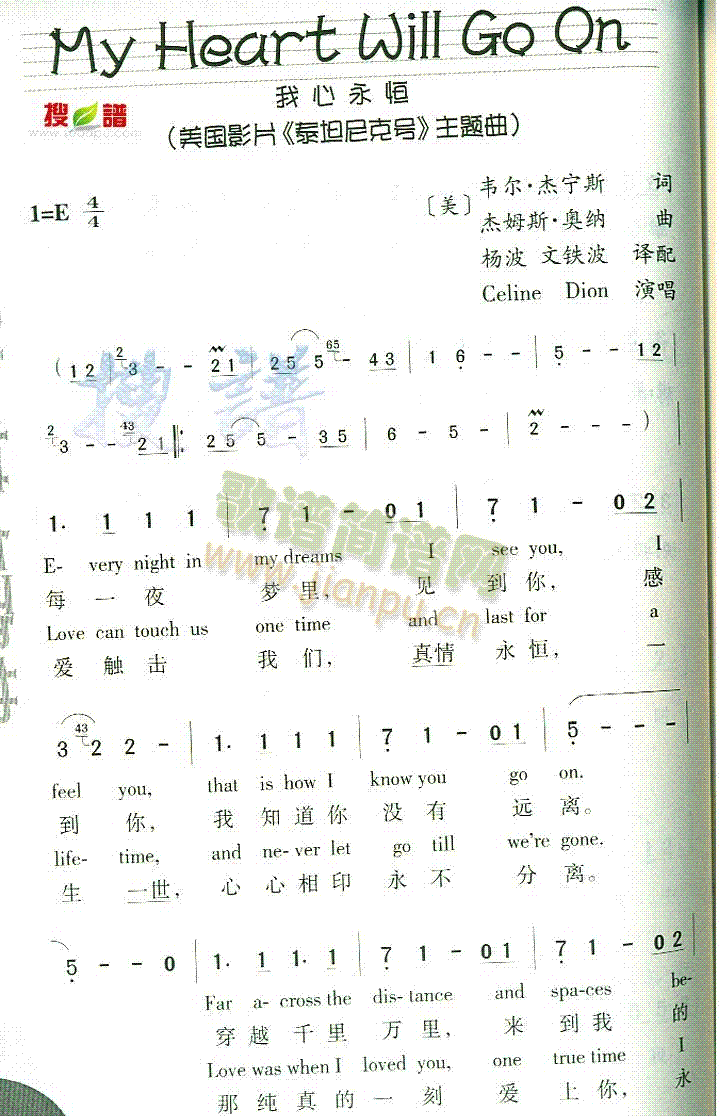 My Heart Will Go On
我心永恒
(美国影片《泰坦尼克号》主题曲)
搜 谱
1=E 4/4
〔美〕
韦尔·杰宁斯 词
杰姆斯·奥纳 曲
杨波 文铁波 译配
Celine Dion 演唱
( 1 2 2 3 - - 2 1 | 2 5 5 65 - 4 3 | 1 6 - - | 5 - - 1 2 |
2 3 - - 43 2 1 ‖: 2 5 5 - 3 5 | 6 - 5 - | 2 - - - )
搜 谱
歌谱简谱网
www.jianpu.cn
1. 1 1 1 | 7 1 - 0 1 | 7 1 - 0 2 |
E- very night in my dreams I see you, I
每 一 夜 梦 里, 见 到 你, 感
Love can touch us one time and last for a
爱 触 击 我 们, 真情 永 恒, 一
3 43 2 2 - | 1. 1 1 1 | 7 1 - 0 1 | 5 - - -
feel you, that is how I know you go on.
到 你, 我 知 道 你 没 有 远 离。
life- time, and ne- ver let go till we're gone.
生 一世, 心 心 相 印 永 不 分 离。
5 - - 0 | 1. 1 1. 1 | 7 1 - 0 1 | 7 1 - 0 2
Far a- cross the dis- tance and spa- ces be-
穿 越 千 里 万 里, 来 到 我 的
Love was when I loved you, one true time I
那 纯 真 的 一 刻 爱 上 你, 永